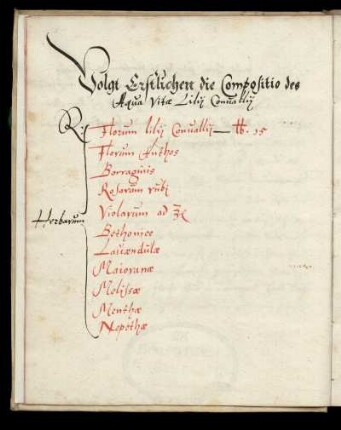 Volgt Erstlichen die Compositio des
Aqua Vitæ Lilij Convallij
℞: Florum lilij Conuallij — ℔. 15
Florum Anthos
Borraginis
Rosarum rub:
Violarum ad
Herbarum
Bethonice
Lauendulæ
Maioranæ
Melissæ
Menthæ
Nepethæ